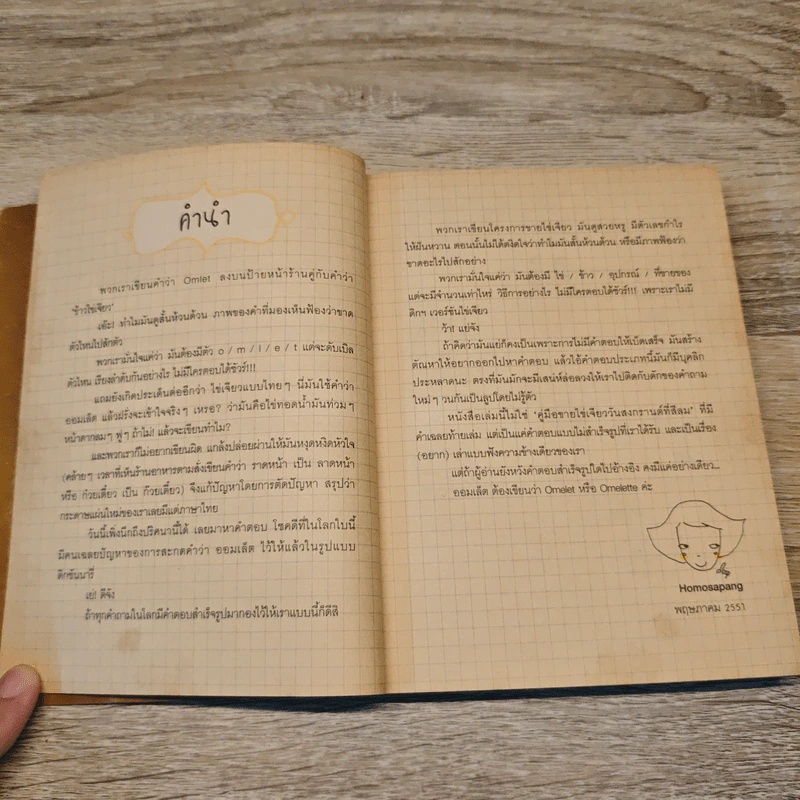 คำนำ
พวกเราเขียนคำว่า Omlet ลงบนป้ายหน้าร้านคู่กับคำว่า
'ข้าวไข่เจียว'
เอ๊ะ! ทำไมมันดูสั้นห้วนด้วน ภาพของคำที่มองเห็นฟ้องว่าขาด
ตัวไหนไปสักตัว
พวกเรามั่นใจแค่ว่า มันต้องมีตัว o / m / l / e / t แต่จะดับเบิล
ตัวไหน เรียงลำดับกันอย่างไร ไม่มีใครตอบได้ชัวร์!!!
แถมยังเกิดประเด็นต่ออีกว่า ไข่เจียวแบบไทยๆ นี่มันใช้คำว่า
ออมเล็ต แล้วฝรั่งจะเข้าใจจริงๆ เหรอ? ว่ามันคือไข่ทอดน้ำมันท่วมๆ
หน้าตากลมๆ ฟูๆ ถ้าไม่! แล้วจะเขียนทำไม?
และพวกเราก็ไม่อยากเขียนผิด แกล้งปล่อยผ่านให้มันหงุดหงิดหัวใจ
(คล้ายๆ เวลาที่เห็นร้านอาหารตามสั่งเขียนคำว่า ราดหน้า เป็น ลาดหน้า
หรือ ก๋วยเตี๋ยว เป็น ก๊วยเตี๋ยว) จึงแก้ปัญหาโดยการตัดปัญหา สรุปว่า
กระดาษแผ่นใหม่ของเราเลยมีแต่ภาษาไทย
วันนี้เพิ่งนึกถึงปริศนานี้ได้ เลยมาหาคำตอบ โชคดีที่ในโลกใบนี้
มีคนเฉลยปัญหาของการสะกดคำว่า ออมเล็ต ไว้ให้แล้วในรูปแบบ
ดิกชันนารี่
เย่! ดีจัง
ถ้าทุกคำถามในโลกมีคำตอบสำเร็จรูปมากองไว้ให้เราแบบนี้ก็ดีสิ
พวกเราเขียนโครงการขายไข่เจียว มันดูสวยหรู มีตัวเลขกำไร
ให้ฝันหวาน ตอนนั้นไม่ได้ตงิดใจว่าทำไมมันสั้นห้วนด้วน หรือมีภาพฟ้องว่า
ขาดอะไรไปสักอย่าง
พวกเรามั่นใจแค่ว่า มันต้องมี ไข่ / ข้าว / อุปกรณ์ / ที่ขายของ
แต่จะมีจำนวนเท่าไหร่ วิธีการอย่างไร ไม่มีใครตอบได้ชัวร์!!! เพราะเราไม่มี
ดิกฯ เวอร์ชันไข่เจียว
ว้า! แย่จัง
ถ้าคิดว่ามันแย่ก็คงเป็นเพราะการไม่มีคำตอบให้เบ็ดเสร็จ มันสร้าง
ตัณหาให้อยากออกไปหาคำตอบ แล้วไอ้คำตอบประเภทนี้มันก็มีบุคลิก
ประหลาดนะ ตรงที่มันมักจะมีเสน่ห์ล่อลวงให้เราไปติดกับดักของคำถาม
ใหม่ๆ วนกันเป็นลูปโดยไม่รู้ตัว
หนังสือเล่มนี้ไม่ใช่ 'คู่มือขายไข่เจียววันสงกรานต์ที่สีลม' ที่มี
คำเฉลยท้ายเล่ม แต่เป็นแค่คำตอบแบบไม่สำเร็จรูปที่เราได้รับ และเป็นเรื่อง
(อยาก) เล่าแบบฟังความข้างเดียวของเรา
แต่ถ้าผู้อ่านยังหวังคำตอบสำเร็จรูปใดไปอ้างอิง คงมีแค่อย่างเดียว...
ออมเล็ต ต้องเขียนว่า Omelet หรือ Omelette ค่ะ
Homosapang
พฤษภาคม 2551